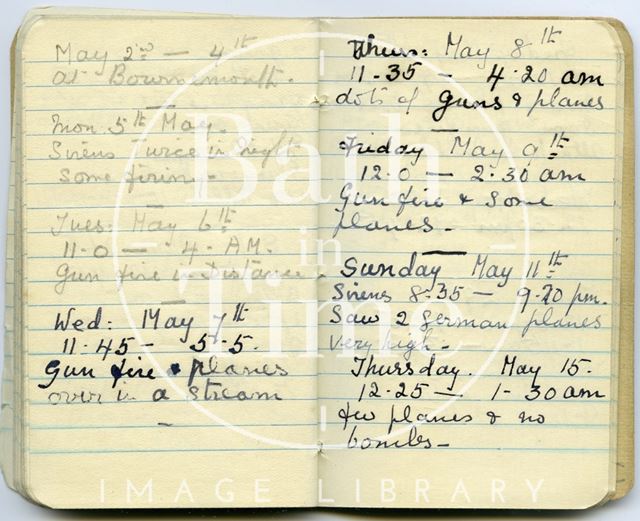 May 2nd — 4th
at Bournemouth.
Mon. 5th May.
Sirens Twice in night
some firing -
Tues: May 6th
11-0 — 4. A.M.
Gun fire in distance.
Wed: May 7th
11-45 - 5-5.
Gun fire & planes
over in a stream
Thurs: May 8th
11-35 — 4.20 am
dots of Guns & planes
Friday May 9th
12.0 — 2.30 am
Gun fire & some
planes -
Sunday May 11th
Sirens 8-35 — 9-20 pm.
Saw 2 German planes
very high -
Thursday. May 15.
12-25 — 1-30 am
few planes & no
bombs -
Bath
in
Time
IMAGE LIBRARY